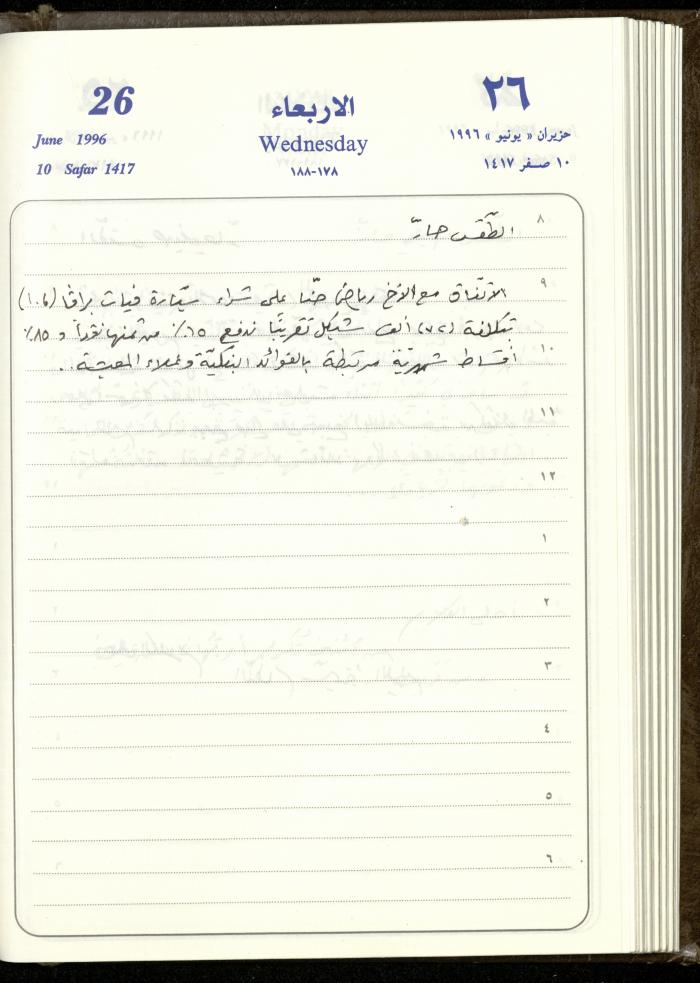 26
June 1996
10 Safar 1417
الاربعاء
Wednesday
١٧٨-١٨٨
٢٦
حزيران « يونيو » ١٩٩٦
١٠ صفر ١٤١٧
٨
الطّقس حارّ
٩
الاتّفاق مع الأخ رياض حنّا على شراء سيّارة فيات براڤا (١٠٦)
بتكلفة (٧٢) ألف شيكل تقريبًا ندفع ١٥٪ من ثمنها نقداً و ٨٥٪
١٠
أقساط شهريّة مرتبطة بالفوائد البنكيّة وغلاء المعيشة..
١١
١٢
١
٢
٣
٤
٥
٦